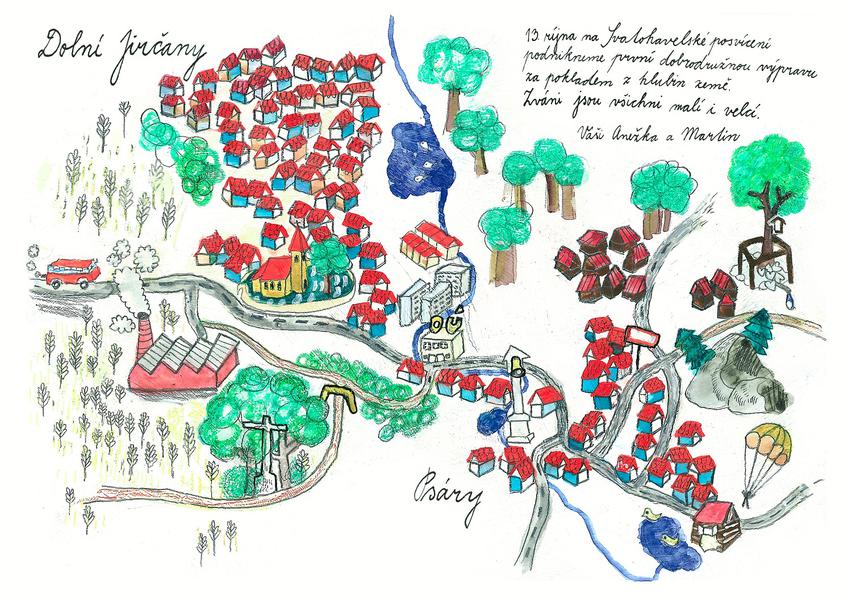 Dolní Jirčany
13. října na Svatohavelské posvícení
podnikneme první dobrodružnou výpravu
za pokladem z hlubin země.
Zváni jsou všichni malí i velcí.
Vaši Anežka a Martin
OÚ
Psáry